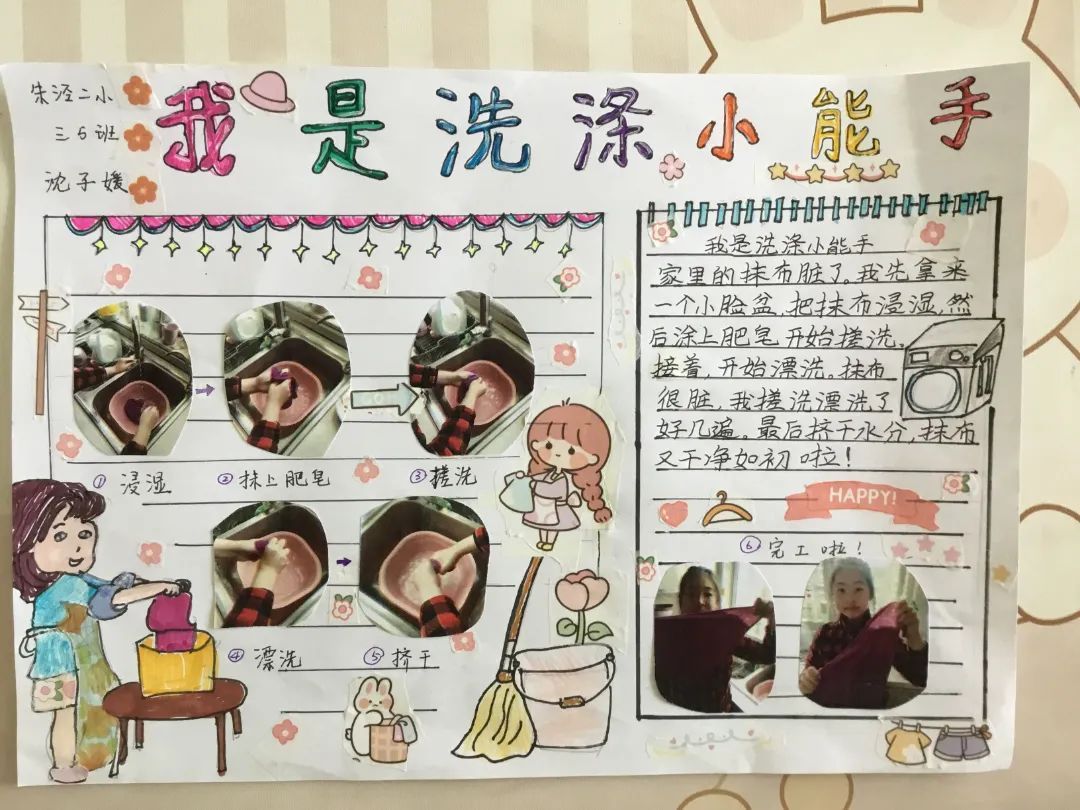 朱泾二小
三5班
沈子媛
我是洗涤小能手
我是洗涤小能手
家里的抹布脏了。我先拿来
一个小脸盆,把抹布浸湿,然
后涂上肥皂开始搓洗。
接着,开始漂洗。抹布
很脏,我搓洗漂洗了
好几遍。最后挤干水分,抹布
又干净如初啦!
GO
①浸湿
②抹上肥皂
③搓洗
④漂洗
⑤挤干
HAPPY!
⑥完工啦!